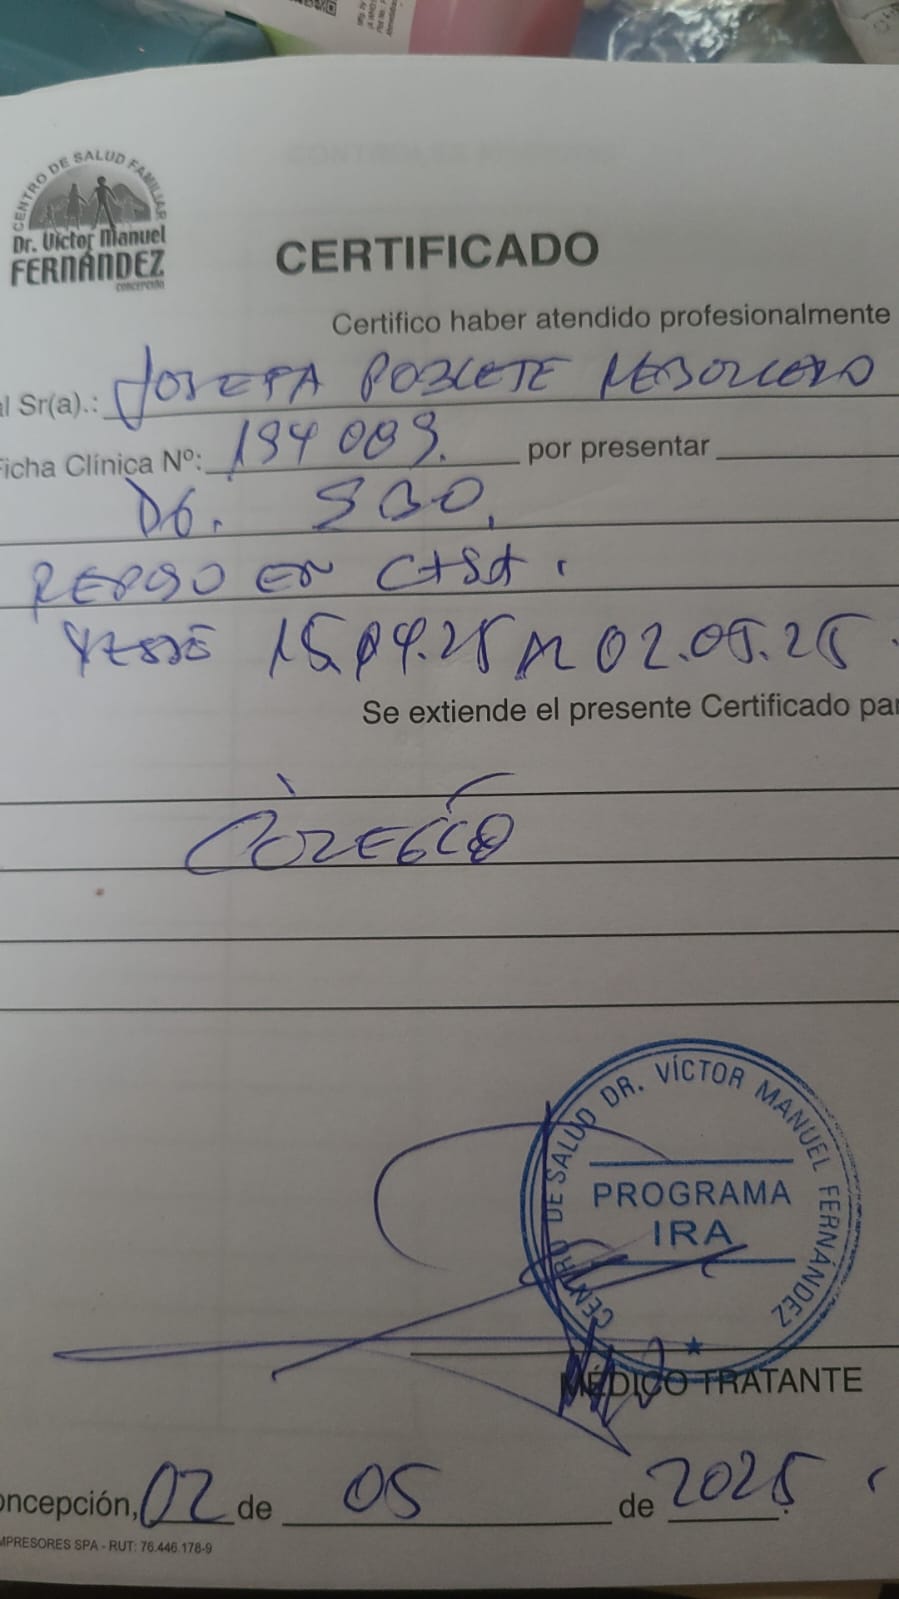 CENTRO DE SALUD FAMILIAR
Dr. Víctor Manuel
FERNÁNDEZ
CONCEPCIÓN
CERTIFICADO
Certifico haber atendido profesionalmente
al Sr(a).: JOSEFA POBLETE REBOLLEDO
Ficha Clínica Nº: 194 009. por presentar
DG. SBO,
REPOSO EN CASA.
DESDE 15.04.25 AL 02.05.25.
Se extiende el presente Certificado par
COLEGIO
CENTRO DE SALUD DR. VÍCTOR MANUEL FERNÁNDEZ
PROGRAMA
IRA
MÉDICO TRATANTE
oncepción, 02 de 05 de 2025.
MPRESORES SPA - RUT: 76.446.178-9